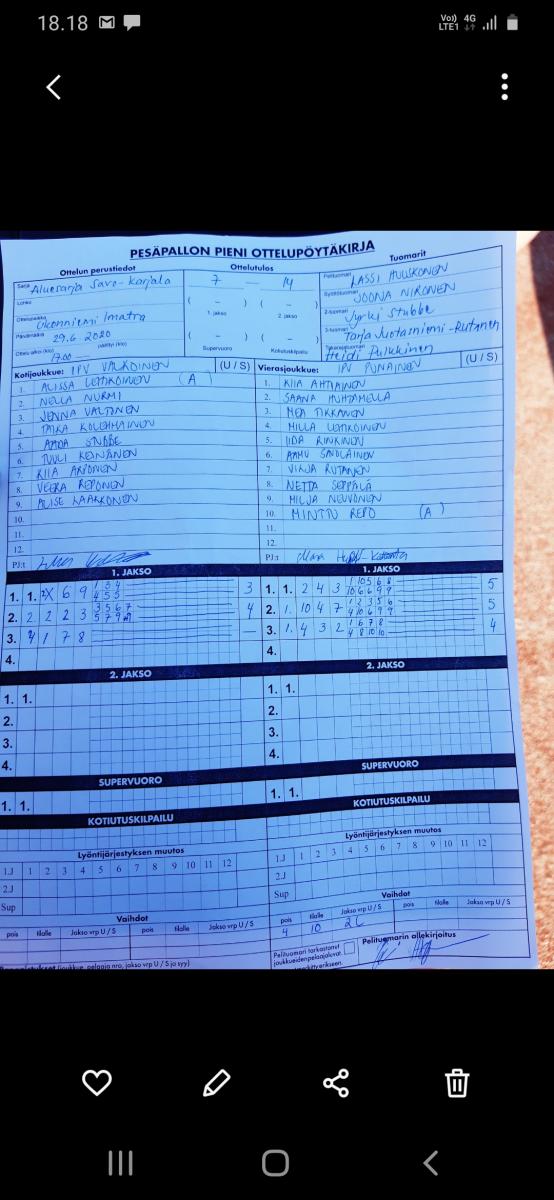 18.18
Vo)) 4G
LTE1
PESÄPALLON PIENI OTTELUPÖYTÄKIRJA
Ottelun perustiedot
Ottelutulos
Tuomarit
Sarja Aluesarja Savo-Karjala
7 — 14
Pelituomari LASSI HULKKONEN
Lohko
( – ) ( – )
Syöttötuomari JOONA NIRONEN
Ottelupaikka Ukonniemi Imatra
1. jakso 2. jakso
2-tuomari Jyrki Stubbe
Päivämäärä 29.6.2020
( – ) ( – )
3-tuomari Tarja Vuotamiemi-Rutanen
Ottelu alkoi (klo) 17.00 päättyi (klo)
Supervuoro Kotiutuskilpailu
Takarajatuomari Heidi Pulkkinen
Kotijoukkue: IPV VALKOINEN (U / S)
Vierasjoukkue: IPV PUNAINEN (U / S)
1. ALISSA LEHKOINEN (A)
1. KIIA AHTIAINEN
2. NELLA NURMI
2. SAANA HUHTAMELLA
3. JENNA VALTONEN
3. MEA TIKKANEN
4. TAIKA KOLEHMAINEN
4. MILLA LEHKOINEN
5. AADA STUBBE
5. IIDA RINKINEN
6. TUULI KEINÄNEN
6. AAMU SAVOLAINEN
7. KIIA ARPONEN
7. VIRJA RUTANEN
8. VEERA REPONEN
8. NETTA SEPPÄLÄ
9. ALISE LAAKKONEN
9. MILJA NEUVONEN
10.
10. MINTTU REPO (A)
11.
11.
12.
12.
PJ:t
PJ:t
1. JAKSO
1. JAKSO
1. 1. X 6 9 1 3 4 3
4 5 5
1. 1. 2 4 3 1 10 5 6 8 5
10 6 6 9 9
2. 2 2 2 3 3 5 6 7 4
5 7 9
2. 1. 10 4 7 1 2 3 5 6 5
4 10 6 9 9
3. 4 1 7 8 —
3. 1. 4 3 2 1 6 7 8 4
4 8 10 10
4.
4.
2. JAKSO
2. JAKSO
1. 1.
1. 1.
2.
2.
3.
3.
4.
4.
SUPERVUORO
SUPERVUORO
1. 1.
1. 1.
KOTIUTUSKILPAILU
KOTIUTUSKILPAILU
Lyöntijärjestyksen muutos
Lyöntijärjestyksen muutos
1.J 1 2 3 4 5 6 7 8 9 10 11 12
1.J 1 2 3 4 5 6 7 8 9 10 11 12
2.J
2.J
Sup
Sup
Vaihdot
Vaihdot
pois tilalle Jakso vrp U / S pois tilalle Jakso vrp U / S
pois tilalle Jakso vrp U / S pois tilalle Jakso vrp U / S
4 10 2C
Pelituomari tarkastanut
joukkueidenpelaajaluvat.
Pelituomarin allekirjoitus
(joukkue, pelaaja nro, jakso vrp U / S ja syy)